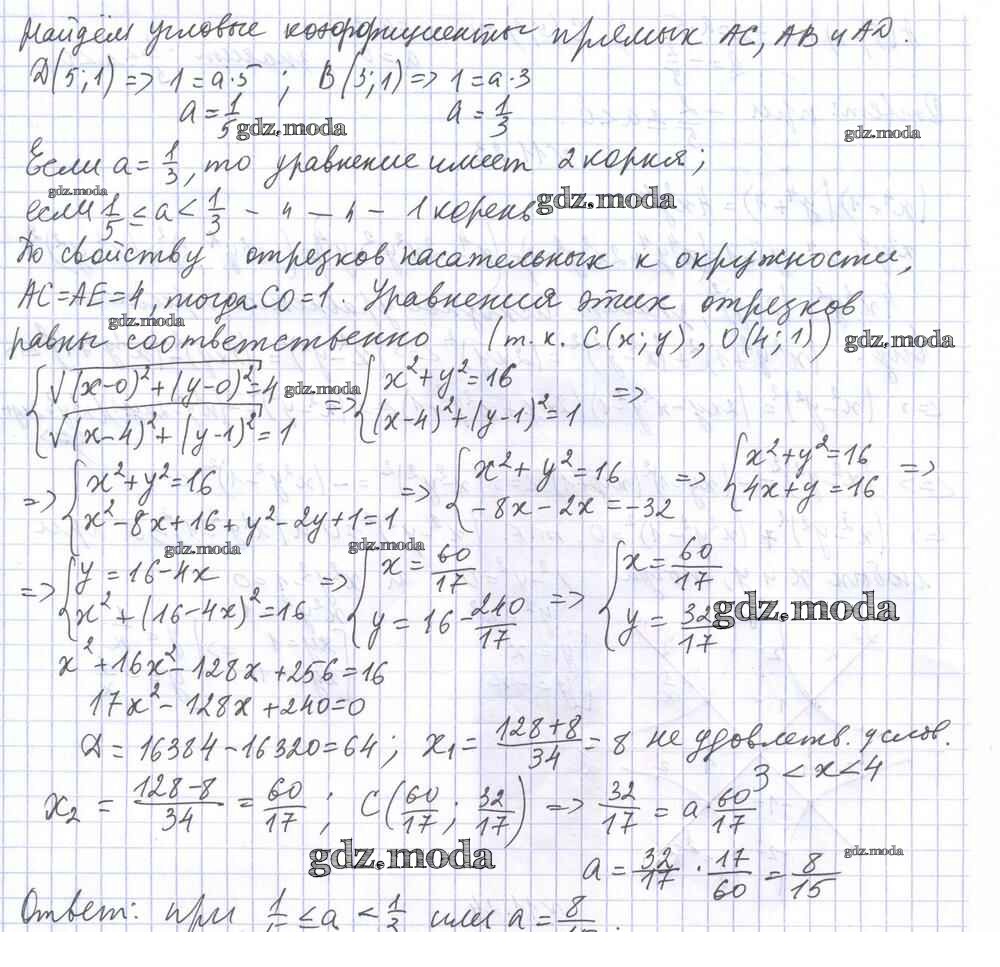 Найдём угловые коэффициенты прямых AC, AB и AD.
D(5;1) => 1=a·5 ; B(3;1) => 1=a·3
a=1/5 a=1/3
gdz.moda
gdz.moda
Если a=1/3, то уравнение имеет 2 корня;
gdz.moda
если 1/5 ≤ a < 1/3 - 〃 - 〃 - 1 корень
gdz.moda
По свойству отрезков касательных к окружности,
AC=AE=4, тогда CO=1. Уравнения этих отрезков
gdz.moda
равны соответственно (т.к. C(x;y), O(4;1))
gdz.moda
{√((x-0)²+(y-0)²)=4 => {x²+y²=16 =>
{√((x-4)²+(y-1)²)=1 {(x-4)²+(y-1)²=1
gdz.moda
=> {x²+y²=16 => {x²+y²=16 => {x²+y²=16 =>
{x²-8x+16+y²-2y+1=1 {-8x-2x=-32 {4x+y=16
gdz.moda
gdz.moda
=> {y=16-4x => {x=60/17 => {x=60/17
{x²+(16-4x)²=16 {y=16-240/17 {y=32/17
gdz.moda
x²+16x²-128x+256=16
17x²-128x+240=0
D=16384-16320=64; x₁=(128+8)/34=8 не удовлетв. услов.
3<x<4
x₂=(128-8)/34=60/17; C(60/17;32/17) => 32/17=a·60/17
gdz.moda
gdz.moda
a=32/17·17/60=8/15
Ответ: при 1/5≤a<1/3 или a=8/15.